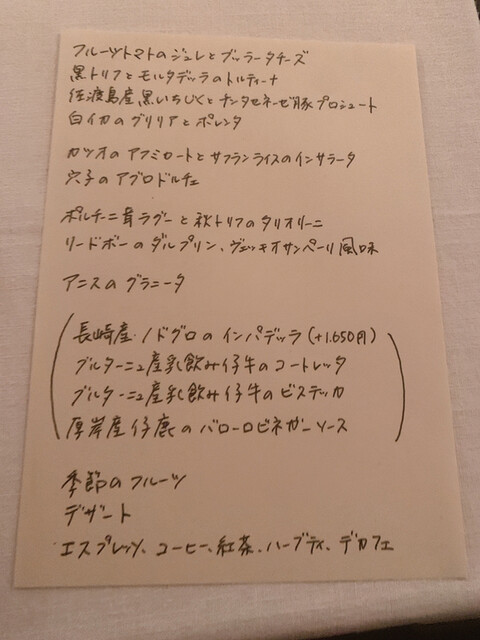 フルーツトマトのジュレとブッラータチーズ
黒トリフとモルタデッラのトルティーナ
佐渡島産黒いちじくとチンタセネーゼ豚プロシュート
白イカのグリリアとポレンタ
カツオのアフミカートとサフランライスのインサラータ
穴子のアグロドルチェ
ポルチーニ茸ラグーと秋トリフのタリオリーニ
リードボーのダルプリン、ヴェッキオサンペーリ風味
アニスのグラニータ
長崎産ノドグロのインパデッラ(+1.650円)
ブルターニュ産乳飲み仔牛のコートレッタ
ブルターニュ産乳飲み仔牛のビステッカ
厚岸産仔鹿のバローロビネガーソース
季節のフルーツ
デザート
エスプレッソ、コーヒー、紅茶、ハーブティ、デカフェ